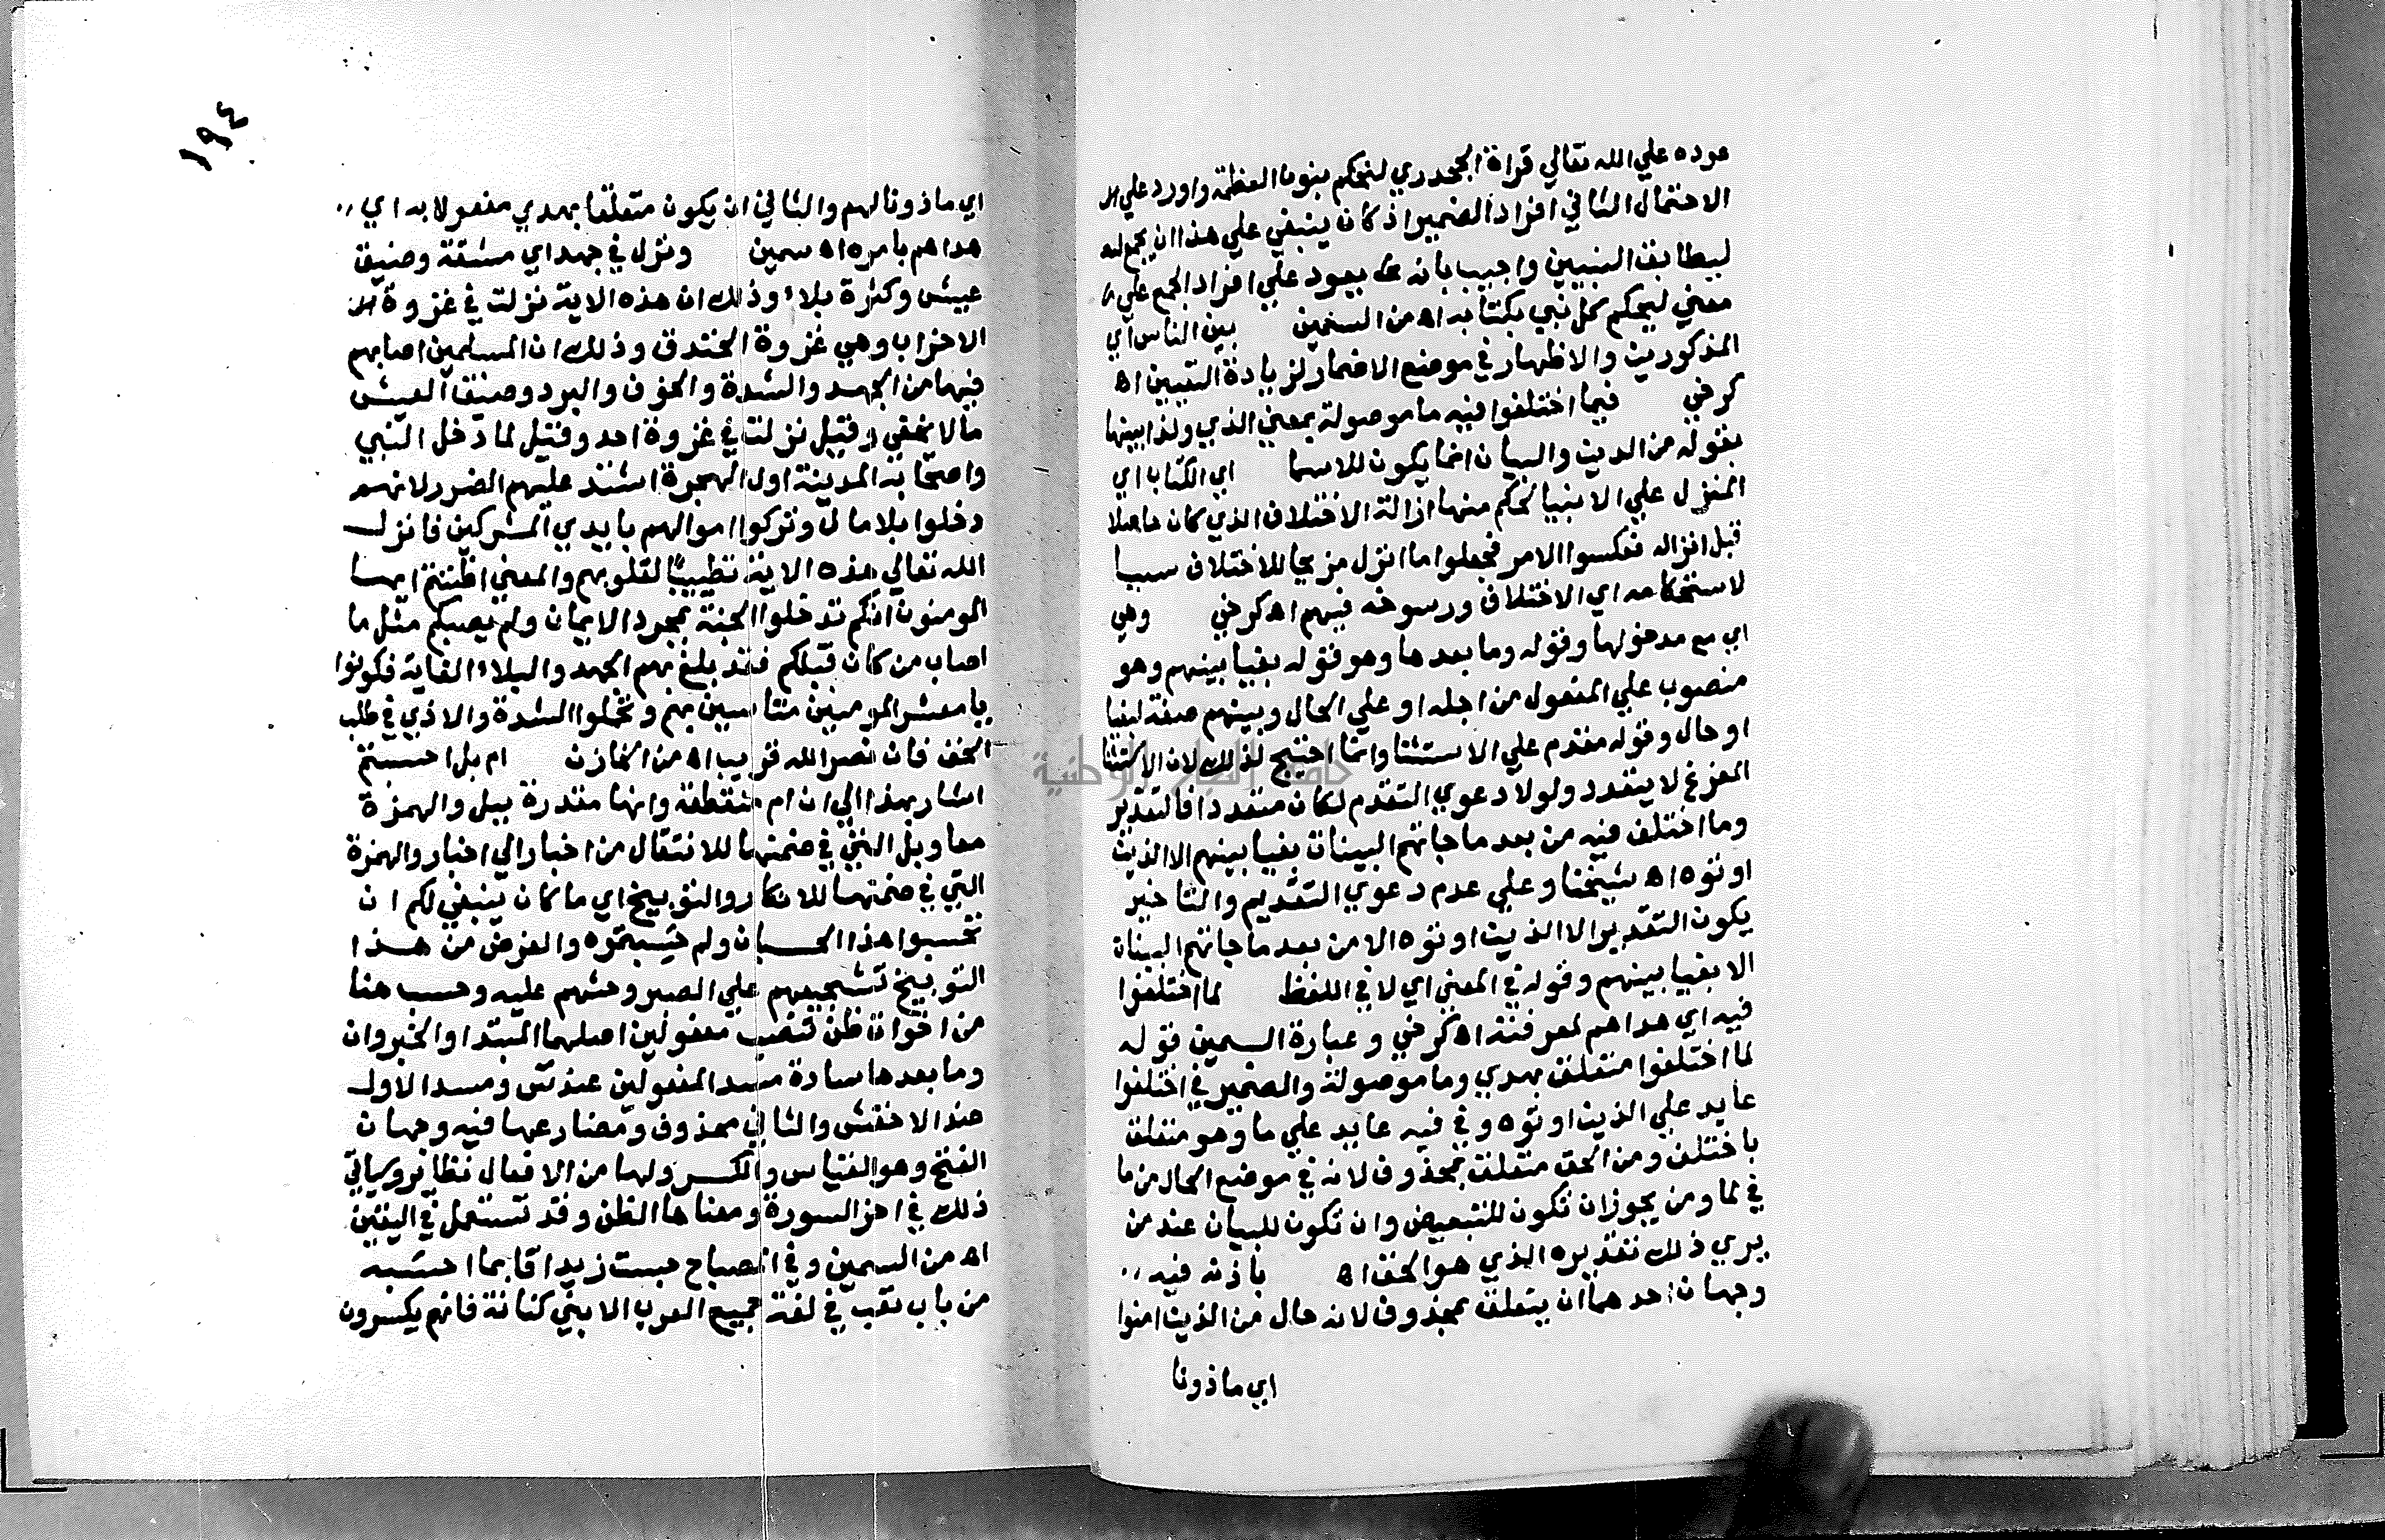 عوده علي الله تعالي قراة الجحدري لنحكم بنون العظمة واورد علي الا
الاحتمال الثاني افراد الضمير اذ كان ينبغي علي هذا ان يجمع له
ليطابق النبيين واجيب بانه يعود علي افراد الجمع علي
معني ليحكم كل نبي بكتابه اه من السمين بين الناس اي
المذكورين والاظهار في موضع الاضمار لزيادة التعيين اه
كرخي فيما اختلفوا فيه ما موصولة بمعني الذي ولذا بينها
بقوله من الدين والبيان انما يكون للاسما اي الكتاب اي
المنزل علي الانبيا لحكم منها ازالة الاختلاف الذي كان حاصلا
قبل انزاله فعكسوا الامر فجعلوا ما انزل مزيحا للاختلاف سببا
لاستحكامه اي الاختلاف ورسوخه فيهم اه كرخي وهي
اي مع مدخولها وقوله وما بعدها وهو قوله بغيا بينهم وهو
منصوب علي المفعول من اجله او علي الحال وبينهم صفة لبغيا
او حال وقوله مقدم علي الاستثنا وانما احتيج لذلك لان الاستثنا
المفرغ لا يتعدد ولولا دعوي التقدم لكان متعددا فالتقدير
وما اختلف فيه من بعد ما جاتهم البينات بغيا بينهم الا الذين
اوتوه اه شيخنا وعلي عدم دعوي التقديم والتاخير
يكون التقدير الا الذين اوتوه الا من بعد ما جاتهم البينات
الا بغيا بينهم وقوله في المعني اي لا في اللفظ لما اختلفوا
فيه اي هداهم لمعرفته اه كرخي وعبارة السمين قوله
لما اختلفوا متعلق بهدي وما موصولة والضمير في اختلفوا
عايد علي الذين اوتوه وفي فيه عايد علي ما وهو متعلق
باختلف ومن الحق متعلق بمحذوف لانه في موضع الحال من ما
في لما ومن يجوز ان تكون للتبعيض وان تكون للبيان عند من
يري ذلك تقديره الذي هو الحق اه باذنه فيه
وجهان احدهما ان يتعلق بمحذوف لانه حال من الذين امنوا
اي ماذونا
١٩٤
اي ماذونا لهم والثاني ان يكون متعلقا بهدي مفعولا به اي
هداهم بامره اه سمين ونزل في جهد اي مشقة وضيق
عيش وكثرة بلاء وذلك ان هذه الاية نزلت في غزوة الا
الاحزاب وهي غزوة الخندق وذلك ان المسلمين اصابهم
فيها من الجهد والشدة والخوف والبرد وضيق العيش
ما لا يخفي وقيل نزلت في غزوة احد وقيل لما دخل النبي
واصحابه المدينة اول الهجرة اشتد عليهم الضرر لانهم
دخلوا بلا مال وتركوا اموالهم بايدي المشركين فانزل
الله تعالي هذه الاية تطييبا لقلوبهم والمعني اظننتم ايها
المومنون انكم تدخلوا الجنة بمجرد الايمان ولم يصبكم مثل ما
اصاب من كان قبلكم فقد بلغ بهم الجهد والبلاء الغاية فكونوا
يا معشر المومنين متاسيين بهم وتحملوا الشدة والاذي في طلب
الحق فان نصر الله قريب اه من الخازن ام بل احسبتم
اشار بهذا الي ان ام منقطعة وانها مقدرة ببل والهمزة
معا وبل التي في ضمنها للانتقال من اخبار الي اخبار والهمزة
التي في ضمنها للانكار والتوبيخ اي ما كان ينبغي لكم ان
تحسبوا هذا الحسبان ولم حسبتموه والغرض من هذا
التوبيخ تشجيعهم علي الصبر وحثهم عليه وحسب هنا
من اخوات ظن تنصب مفعولين اصلهما المبتدا والخبر وان
وما بعدها سادة مسد المفعولين عند س ومسد الاول
عند الاخفش والثاني محذوف ومضارعها فيه وجهان
الفتح وهو القياس والكسر ولها من الافعال نظاير وسياتي
ذلك في اخر السورة ومعناها الظن وقد تستعمل في اليقين
اه من السمين وفي المصباح حسبت زيدا قايما احسبه
من باب تعب في لغة جميع العرب الا بني كنانة فانهم يكسرون